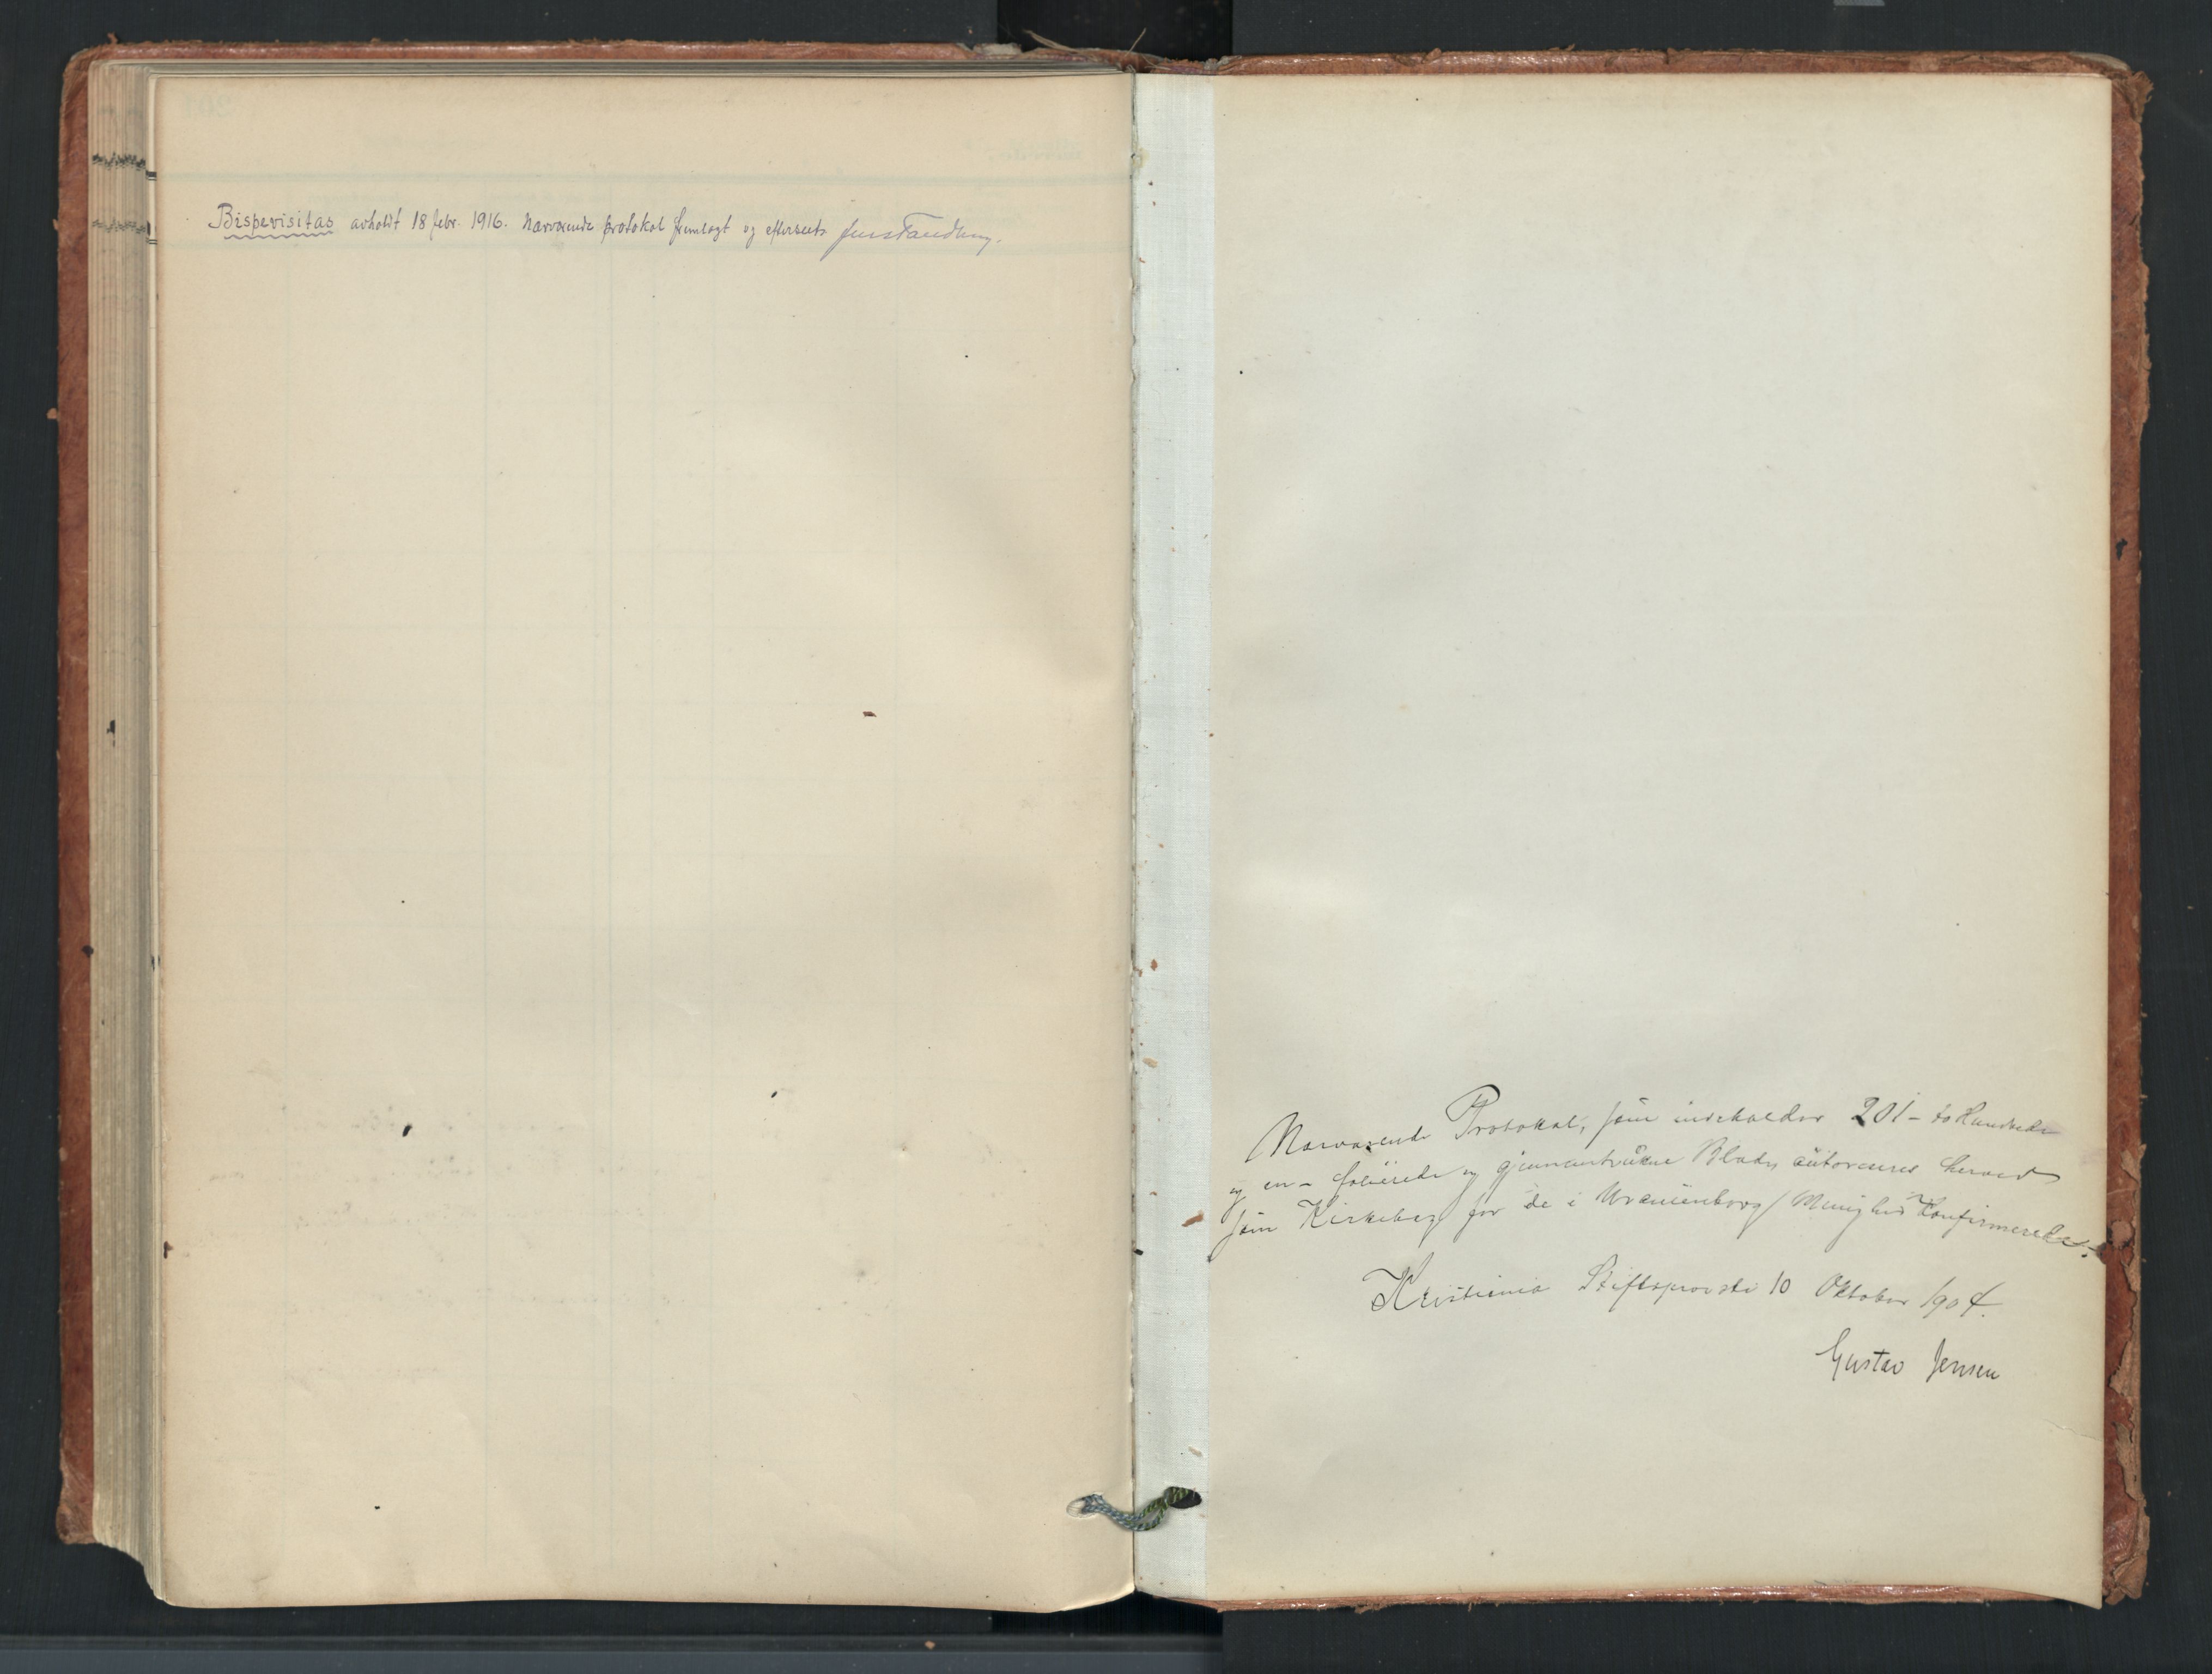 Bispevisitas avholdt 18 febr. 1916. Nærværende protokol fremlagt og efterseet. Jens Tandberg.
Nærværende Protokol, som indeholder 201 – to Hundrede
og en – folierede og gjennemtrukne Blade, autoriseres herved
som Kirkebog for de i Uranienborg Menighed Konfirmerede.
Kristiania Stiftsprovsti 10 Oktober 1904.
Gustav Jensen